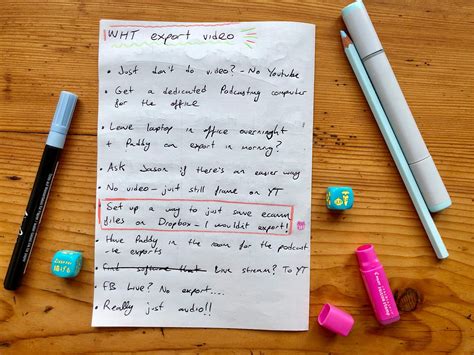 WHT export video
• Just don't do video? - No Youtube
• Get a dedicated Podcasting computer
for the office
• Leave laptop in office overnight
+ Paddy can export in morning?
• Ask Jason if there's an easier way
• No video - just still frame on YT
• Set up a way to just save ecamm
files on Dropbox - I wouldn't export!
• Have Paddy in the room for the podcast
- he exports
• find software that Live stream? To YT
• FB Live? No export....
• Really just audio!!